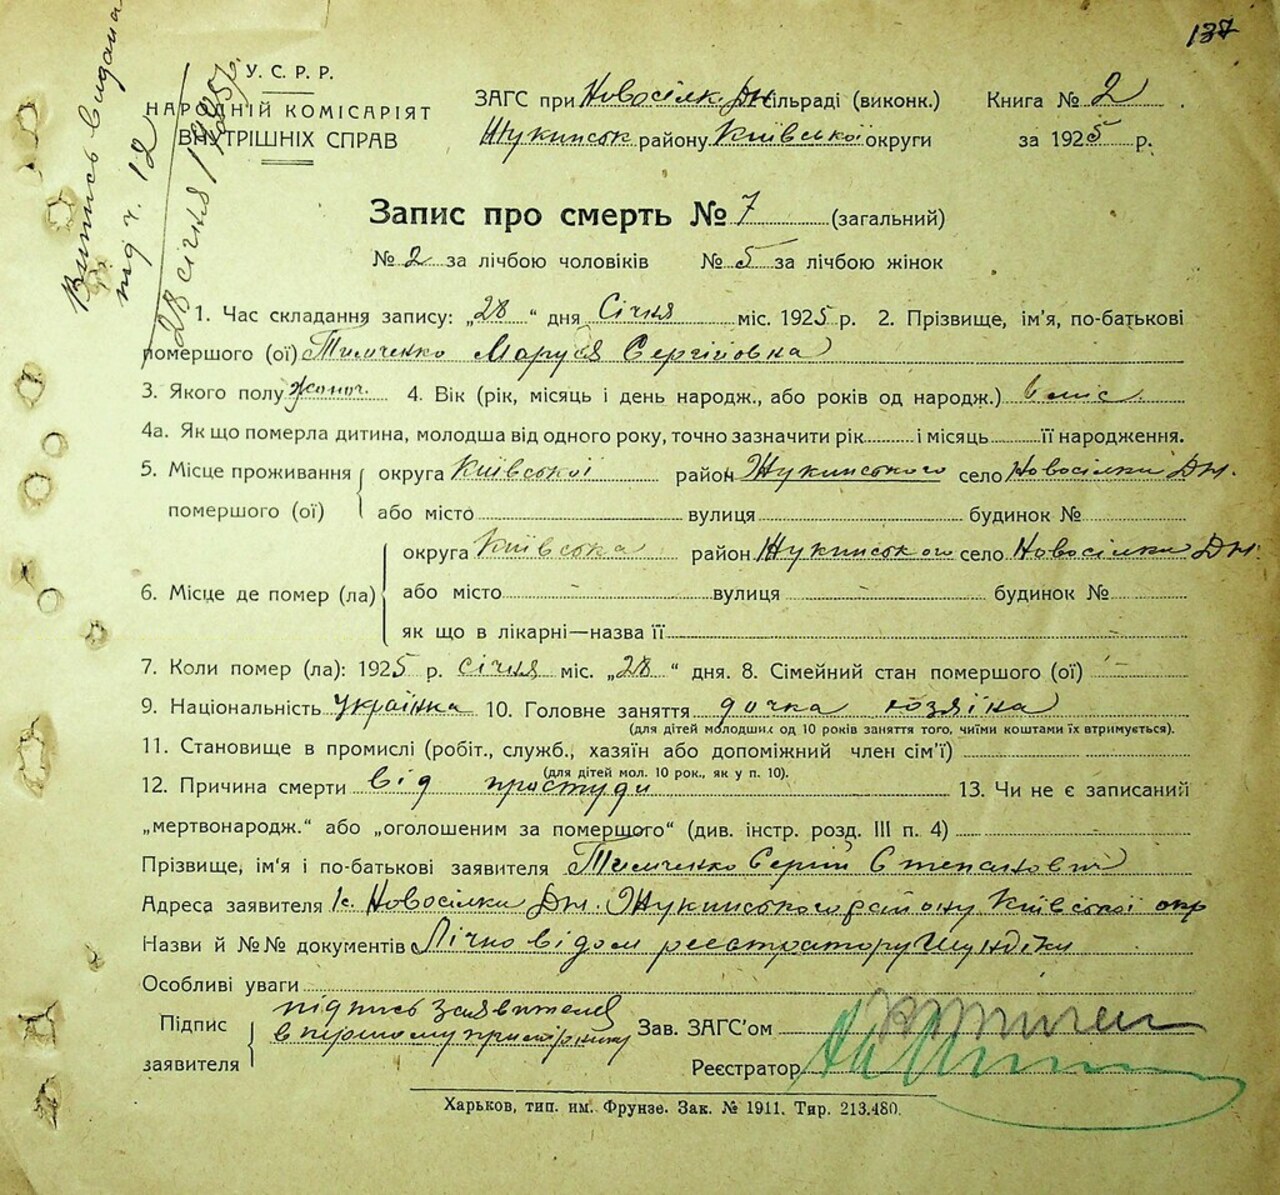 137
Витись видана
під ч. 12
28 січня 1925 р.
У. С. Р. Р.
НАРОДНІЙ КОМІСАРІЯТ
ВНУТРІШНІХ СПРАВ
ЗАГС при Новосілк. Дн сільраді (виконк.) Книга № 2
Жукинськ району Київської округи за 1925 р.
Запис про смерть № 7 (загальний)
№ 2 за лічбою чоловіків № 5 за лічбою жінок
1. Час складання запису: „28“ дня Січня міс. 1925 р. 2. Прізвище, ім'я, по-батькові
помершого (ої) Тимченко Маруся Сергійовна
3. Якого полу жіноч. 4. Вік (рік, місяць і день народж., або років од народж.) 6 міс.
4а. Як що померла дитина, молодша від одного року, точно зазначити рік і місяць її народження.
5. Місце проживання помершого (ої) округа Київської район Жукинського село Новосілки Дн.
або місто вулиця будинок №
6. Місце де помер (ла) округа Київська район Жукинського село Новосілки Дн.
або місто вулиця будинок №
як що в лікарні—назва її
7. Коли помер (ла): 1925 р. січня міс. „28“ дня. 8. Сімейний стан помершого (ої) —
9. Національність українка 10. Головне заняття дочка хозяїна
(для дітей молодших од 10 років заняття того, чиїми коштами їх втримується).
11. Становище в промислі (робіт., служб., хазяїн або допоміжний член сім'ї)
(для дітей мол. 10 рок., як у п. 10).
12. Причина смерти від простуди 13. Чи не є записаний
„мертвонародж.“ або „оголошеним за помершого“ (див. інстр. розд. III п. 4)
Прізвище, ім'я і по-батькові заявителя Тимченко Сергій Степанович
Адреса заявителя с. Новосілки Дн. Жукинського району Київської окр
Назви й №№ документів Лічно відом реєстратору
Особливі уваги
Підпис заявителя підпись заявителя
в першому примірнику
Зав. ЗАГС'ом
Реєстратор
Харьков, тип. им. Фрунзе. Зак. № 1911. Тир. 213.480.